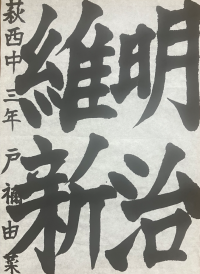 明治
維新
荻西中 三年 戸禰由菜